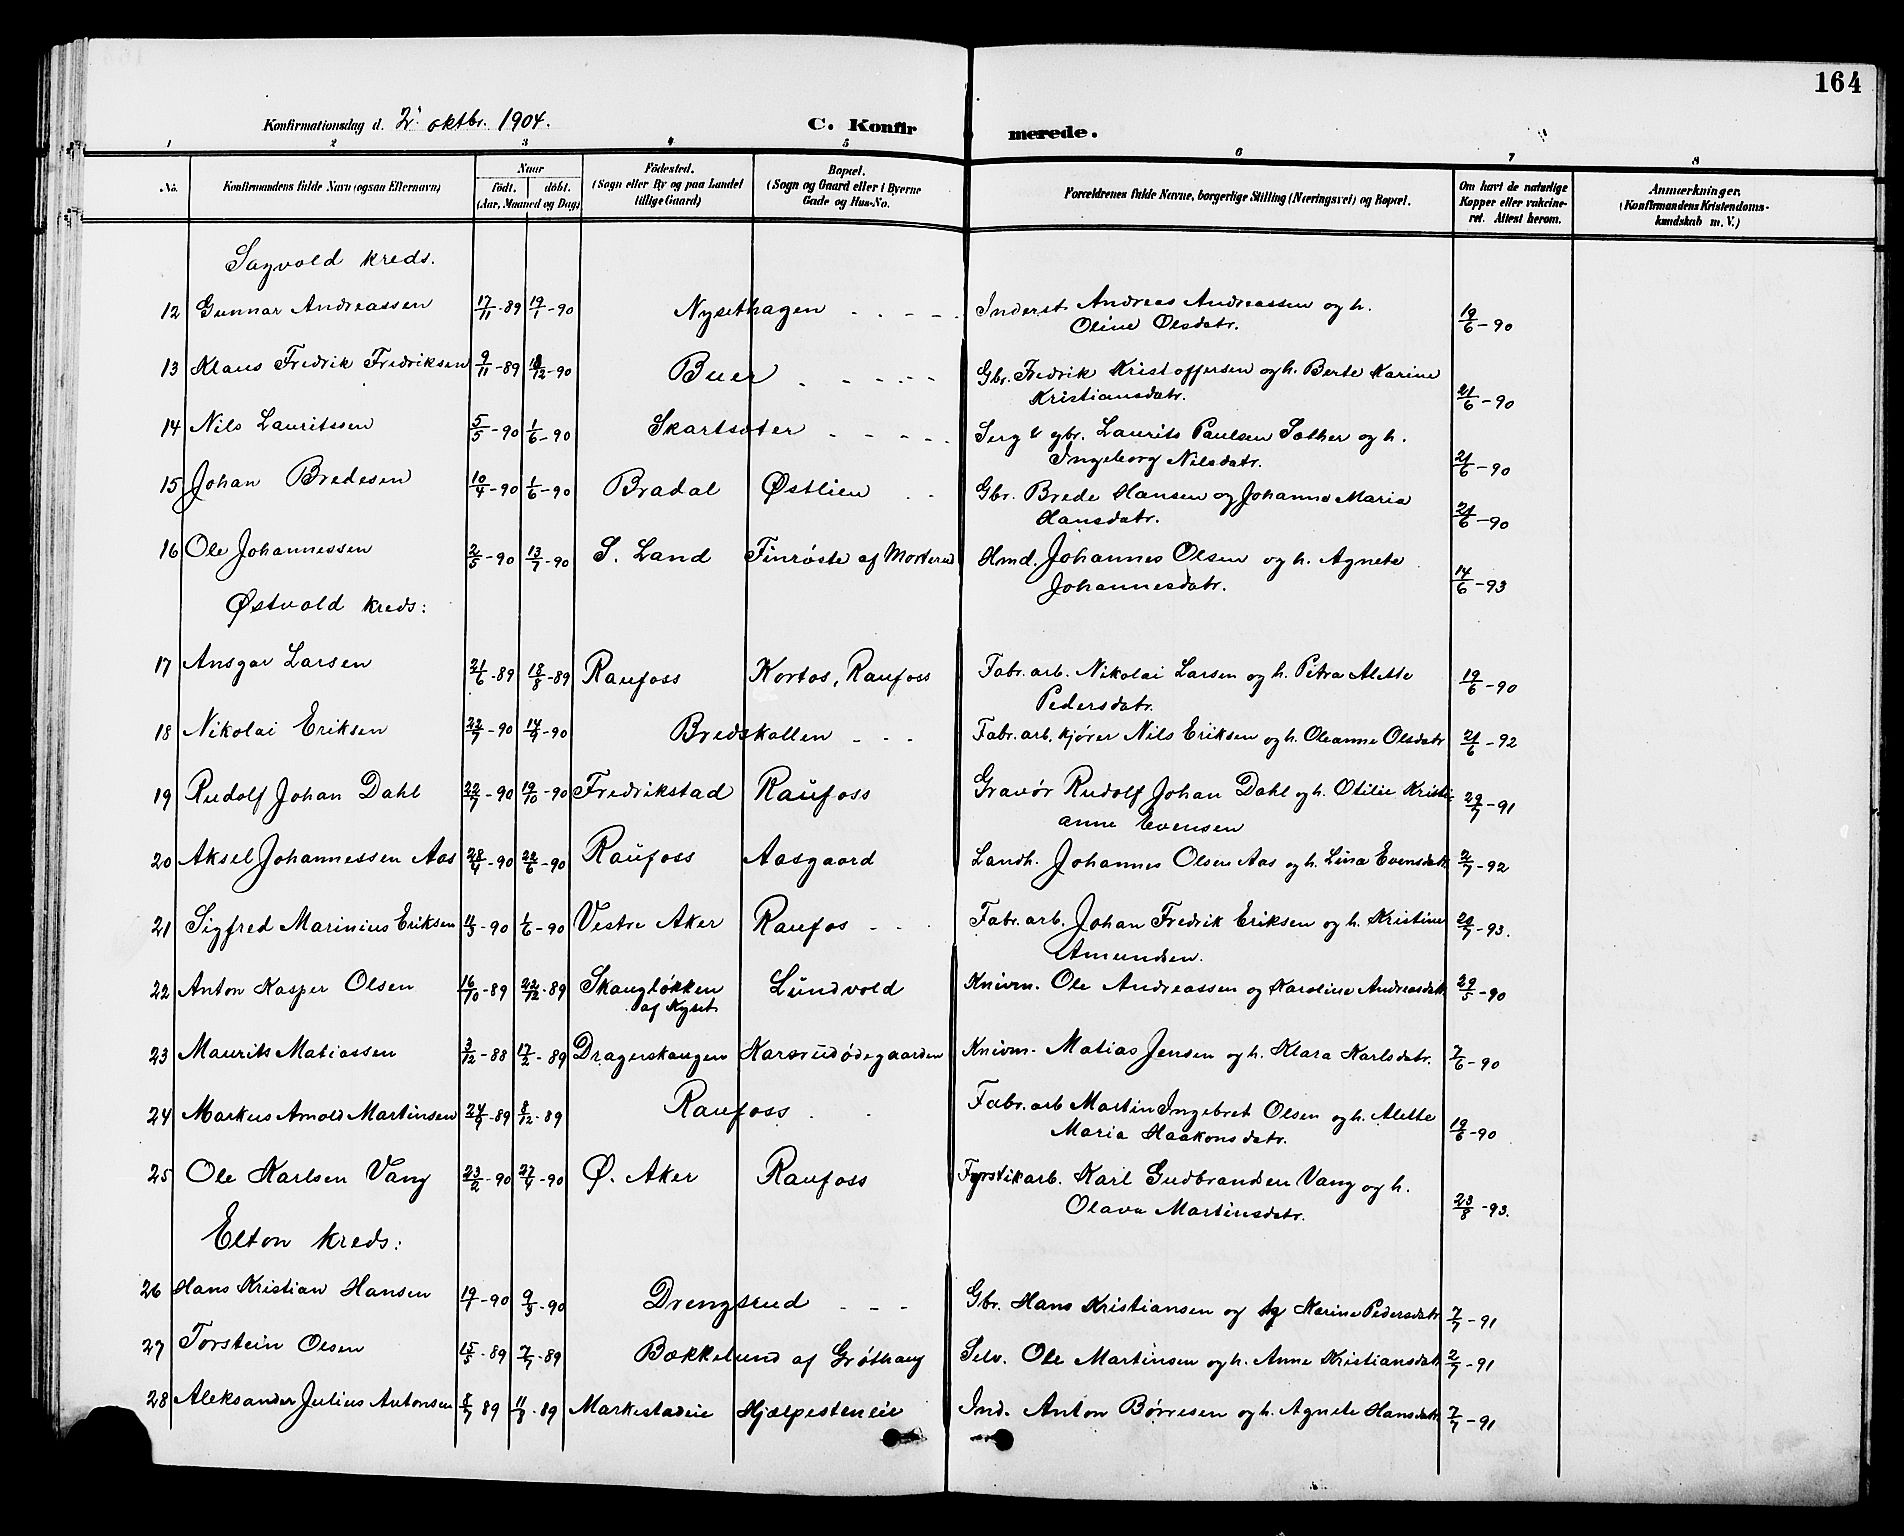 164
Konfirmationsdag d. 2. oktbr. 1904. C. Konfirmerede.
1 2 3 4 5 6 7 8
No. Konfirmandens fulde Navn (ogsaa Efternavn) Naar født. døbt. (Aar, Maaned og Dag) Fødested. (Sogn eller By og paa Landet tillige Gaard) Bopæl. (Sogn og Gaard eller i Byerne Gade og Hus-No. Forældrenes fulde Navne, borgerlige Stilling (Næringsvei) og Bopæl. Om havt de naturlige Kopper eller vakcineret. Attest herom. Anmærkninger. (Konfirmandens Kristendomskundskab m. V.)
Sagvold kreds.
12 Gunnar Andreassen 17/11-89 19/1-90 Nysethagen Inderst Andreas Andreassen og h.
Oline Olsdatr. 19/6-90
13 Klaus Fredrik Fredriksen 9/11-89 /12-90 Buer Gbr. Fredrik Kristoffersen og h. Berte Karine
Kristiansdatr. 21/6-90
14 Nils Lauritssen 5/5-90 1/6-90 Skartsæter Serg & gbr. Laurits Paulsen Sæther og h.
Ingeborg Nilsdatr. 21/6-90
15 Johan Bredesen 10/4-90 1/6-90 Bradal Østlien Gbr. Brede Hansen og Johanna Maria
Hansdatr. 21/6-90
16 Ole Johannessen 2/5-90 13/7-90 S. Land Finrøste af Morterud Hmd. Johannes Olsen og h. Agnete
Johannesdatr. 14/6-93
Østvold kreds:
17 Ansgar Larsen 21/6-89 18/8-89 Raufoss Kortos, Raufoss Fabr. arb. Nikolai Larsen og h. Petra Alette
Pedersdatr. 19/6-90
18 Nikolai Eriksen 22/7-90 14/9-90 Bredskallen Fabr. arb. kjører Nils Eriksen og h. Oleanne Olsdatr 21/6-92
19 Rudolf Johan Dahl 22/7-90 19/10-90 Fredrikstad Raufoss Gravør Rudolf Johan Dahl og h. Otilie Kristi-
anne Evensen 29/7-91
20 Aksel Johannessen Aas 28/4-90 22/6-90 Raufoss Aasgaard Landh. Johannes Olsen Aas og h. Lina Evensdatr 2/7-92
21 Sigfred Marinius Eriksen 11/3-90 1/6-90 Vestre Aker Raufos Fabr. arb. Johan Fredrik Eriksen og h. Kristine
Amundsen. 29/7-93.
22 Anton Kasper Olsen 16/10-89 22/12-89 Skaugløkken Lundvold Knivm. Ole Andreassen og Karoline Andreasdatr 29/5-90
af Kyset
23 Maurits Matiassen 3/12-88 17/2-89 Dragerskaugen Karsrudødegaarden Knivm. Matias Jensen og h. Klara Karlsdatr. 7/6-90
24 Markus Arnold Martinsen 24/9-89 8/12-89 Raufoss Fabr. arb Martin Ingebret Olsen og h. Alette
Maria Haakonsdatr. 19/6-90
25 Ole Karlsen Vang 23/2-90 27/4-90 Ø. Aker Raufoss Fyrstikarb. Karl Gudbrandsen Vang og h.
Olava Martinsdatr. 23/8-93.
Elton kreds:
26 Hans Kristian Hansen 19/1-90 9/3-90 Drengsrud Gbr. Hans Kristiansen og Karine Pedersdatr 7/7-91
27 Torstein Olsen 15/5-89 7/7-89 Bækkelund af Grøthaug Selv. Ole Martinsen og h. Anne Kristiansdatr 2/7-91
28 Aleksander Julius Antonsen 8/7 89 11/8-89 Markestadeie Hjælpesteneie Ind. Anton Børresen og h. Agnete Hansdatr 7/7-91